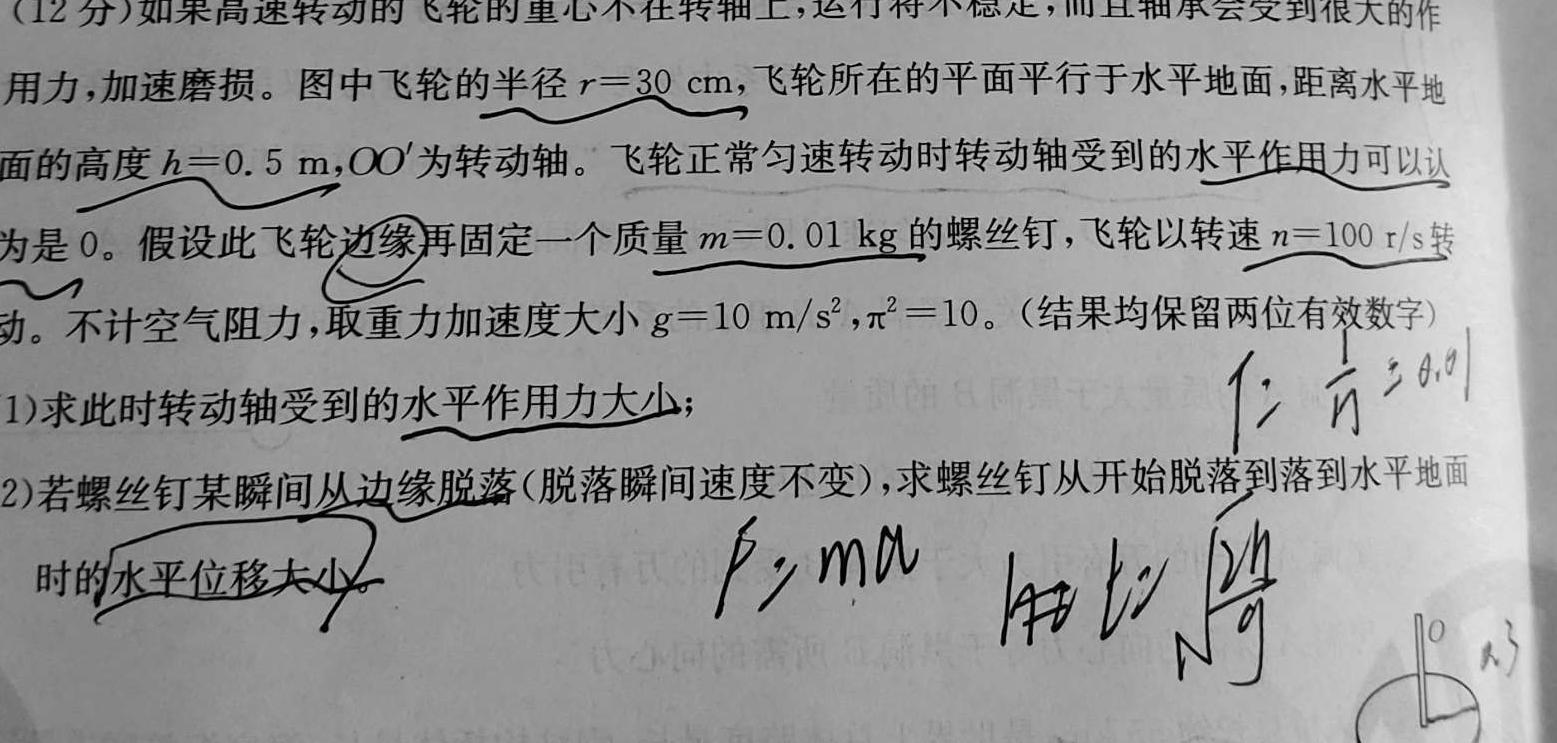 (12分)如果高速转动的飞轮的重心不在转轴上,运行将不稳定,而且轴承会受到很大的作
用力,加速磨损。图中飞轮的半径 r=30 cm,飞轮所在的平面平行于水平地面,距离水平地
面的高度 h=0.5 m,OO′为转动轴。飞轮正常匀速转动时转动轴受到的水平作用力可以认
为是 0。假设此飞轮边缘再固定一个质量 m=0.01 kg 的螺丝钉,飞轮以转速 n=100 r/s 转
动。不计空气阻力,取重力加速度大小 g=10 m/s²,π²=10。(结果均保留两位有效数字)
1)求此时转动轴受到的水平作用力大小;
2)若螺丝钉某瞬间从边缘脱落(脱落瞬间速度不变),求螺丝钉从开始脱落到落到水平地面
时的水平位移大小。
1/n = 0.01
F = ma
t = √2h/g
O